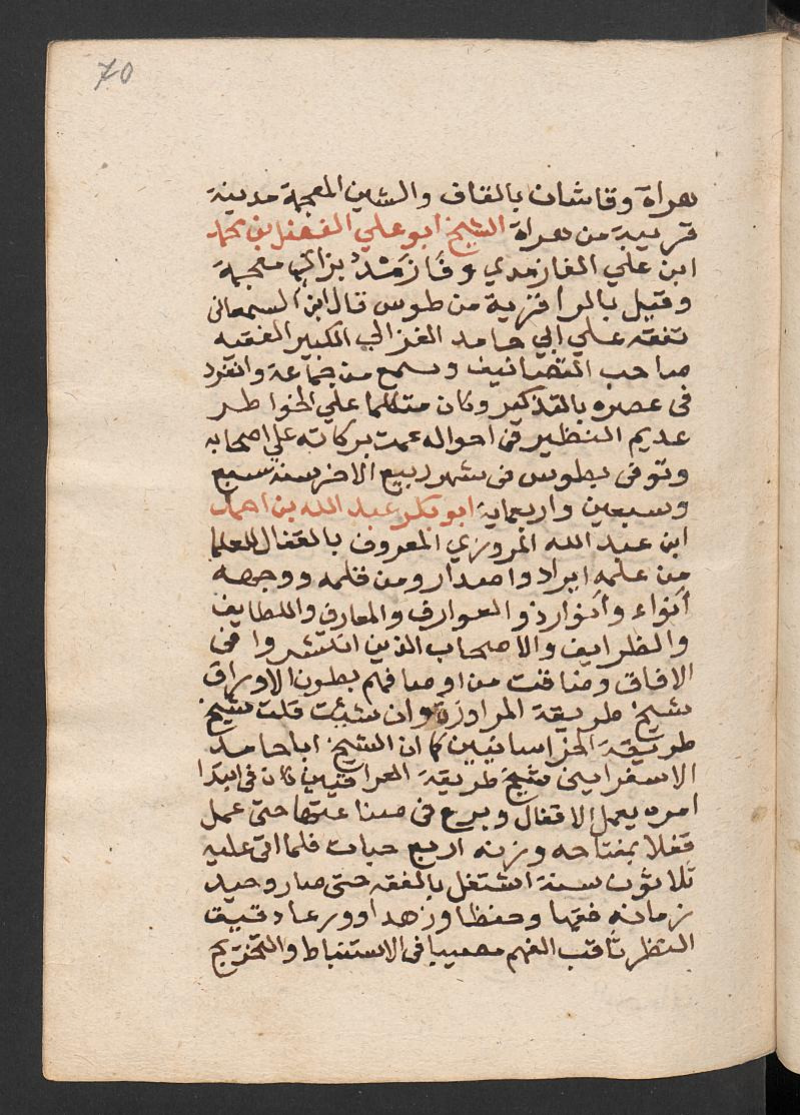 70
هراة وقاشان بالقاف والشين المعجمة مدينة
قريبة من هراة الشيخ ابو علي الفضل بن محمد
ابن علي الفارمدي وفَارْمَدْ بزاي معجمة
وقيل بالرا قرية من طوس قال ابن السمعاني
تفقه علي ابي حامد الغزالي الكبير الفقيه
صاحب التصانيف وسمع من جماعة وانفرد
في عصره بالتذكير وكان متكلما علي الخواطر
عديم النظير في احواله عمت بركاته علي اصحابه
وتوفى بطوس فى شهر ربيع الاخر سنة سبع
وسبعين واربعماية ابو بكر عبد الله بن احمد
ابن عبد الله المروزي المعروف بالقفال للعلما
من علمه ايراد واصدار ومن قلمه ووجهه
أنواء وأنوار ذو العوارف والمعارف واللطايف
والظرايف والاصحاب الذين انتشروا في
الافاق وضاقت من اوصافهم بطون الاوراق
شيخ طريقة المراوزة وان شئت قلت شيخ
طريقة الخراسانيين كما ان الشيخ ابا حامد
الاسفرايني شيخ طريقة العراقيين كان في ابتدا
امره يعمل الاقفال وبرع في صناعتها حتى عمل
قفلا بمفتاحه وزنه اربع حبات فلما اتى عليه
ثلاثون سنة اشتغل بالفقه حتى صار وحيد
زمانه فقها وحفظا وزهدا وورعا دقيق
النظر ثاقب الفهم مصيبا في الاستنباط والتخريج